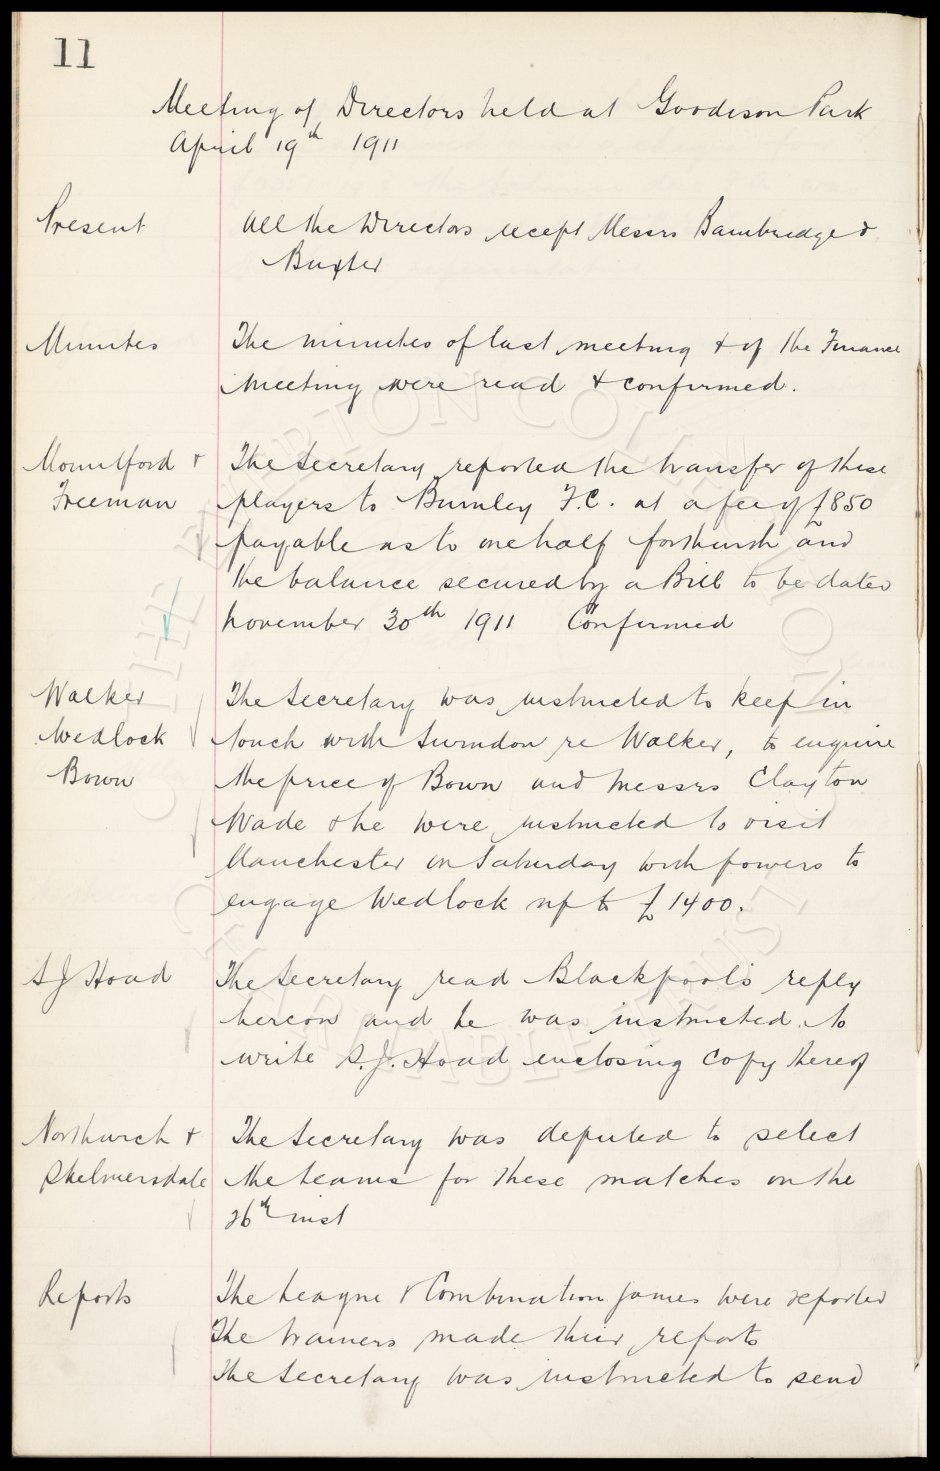 11
Meeting of Directors held at Goodison Park
April 19th 1911
Present
All the Directors except Messrs Bainbridge &
Baxter
Minutes
The minutes of last meeting & of the Finance
Meeting were read & confirmed.
Mountford &
Freeman
The Secretary reported the transfer of these
players to Burnley F.C. at a fee of £850
payable as to one half forthwith and
the balance secured by a Bill to be dated
November 30th 1911 Confirmed
Walker
Wedlock
Bown
The Secretary was instructed to keep in
touch with Swindon re Walker, to enquire
the price of Bown and Messrs Clayton
Wade & he were instructed to visit
Manchester on Saturday with powers to
engage Wedlock up to £1400.
S J Hoad
The Secretary read Blackpool's reply
hereon and he was instructed to
write S.J. Hoad enclosing copy thereof
Northwich &
Skelmersdale
The Secretary was deputed to select
the teams for these matches on the
26th inst
Reports
The League & Combination games were reported
The trainers made their reports
The Secretary was instructed to send